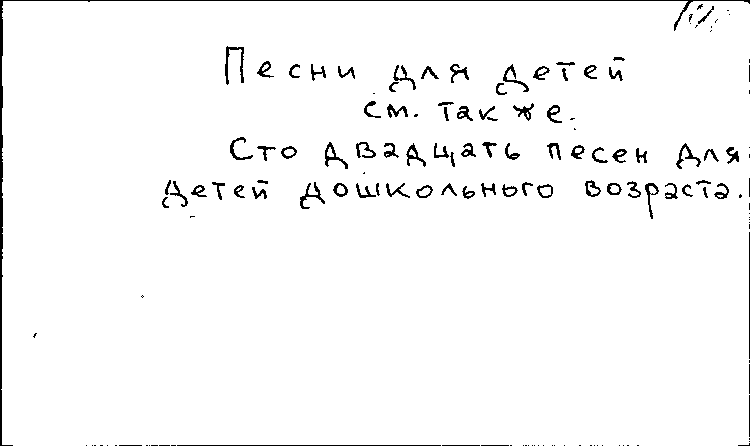 Песни для детей
см. также.
Сто двадцать песен для
детей дошкольного возраста.